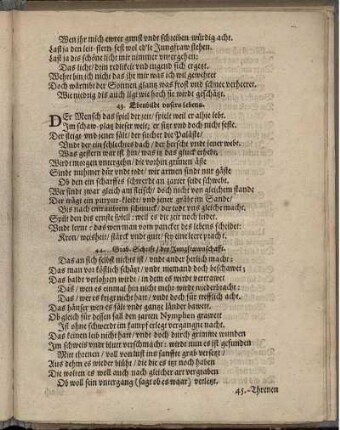 Wen ihr mich ewrer gunst vndt schreiben würdig acht.
Last ja den leit-stern fest wol edle Jungfraw stehen.
Last ja das schöne licht mir nimmer vntergehen:
Das licht / dem redlikeit vnd tugend sich ergetzt.
Wehrt bin ich nicht das ihr mir was ich wil gewehret
Doch wärmbt der Sonnen glantz was frost vnd schnee verheeret.
Wie niedrig dis auch ligt wie hoch sie wirdt geschätzt.
43. Ebenbildt vnsers lebens.
DEr Mensch das spiel der zeit / spielt weil er alhie lebt.
Im schaw-platz dieser welt; er sitzt vnd doch nicht feste.
Der steigt vnd jener fält; der suchet die Paläste /
Vndt der ein schlechtes dach / der herscht vnd jener webt.
Was gestern war ist hin / was itz das glück erhebt;
Wird morgen vntergehn / die vorhin grünen äste
Sindt nuhmer dür vnd todt / wir armen sindt nur gäste
Ob den ein scharffes schwerdt an zarter seide schwebt.
Wir sindt zwar gleich am fleisch / doch nicht von gleichem stande
Der trägt ein purpur-kleidt / vnd jener gräbt im Sande /
Bis nach entraubtem schmuck / der todt vns gleiche macht.
Spilt den dis ernste spiell: weil es die zeit noch leidet.
Vndt lernt: das wen man vom pancket des lebens scheidet:
Kron / weisheit / stärck vnd gutt / sey eine leere pracht.
44. Grab-Schrifft / der Jungfrawschafft.
Das an sich selbst nichts ist / vndt ander herlich macht:
Das man vor köstlich schätzt / vndt niemand doch beschawet;
Das baldt verlohren wirdt / in dem es wirdt vertrawet
Daß / wen es einmal hin nicht mehr wirdt wiederbracht:
Das / wer es trägt nicht hatt / vndt doch für trefflich acht.
Das häuser wen es fält vndt gantze länder bawet.
Ob gleich für dessen fall den zarten Nymphen grawet
Ist ohne schwerdt im kampf erlegt vergangne nacht.
Das keinen leib nicht hatt / vndt doch durch grimme wunden
Im schweis vndt bluet verschmacht: wird nicht gefunden
Mit threnen / voll von lust ins sanffte grab versetzt /
Aus dehm es wieder blüht / die die es itz noch haben
Die wolten es woll auch nach gleicher art vergraben
Ob woll sein vntergang (sagt ob es waar) verletzt.
45.-Threnen